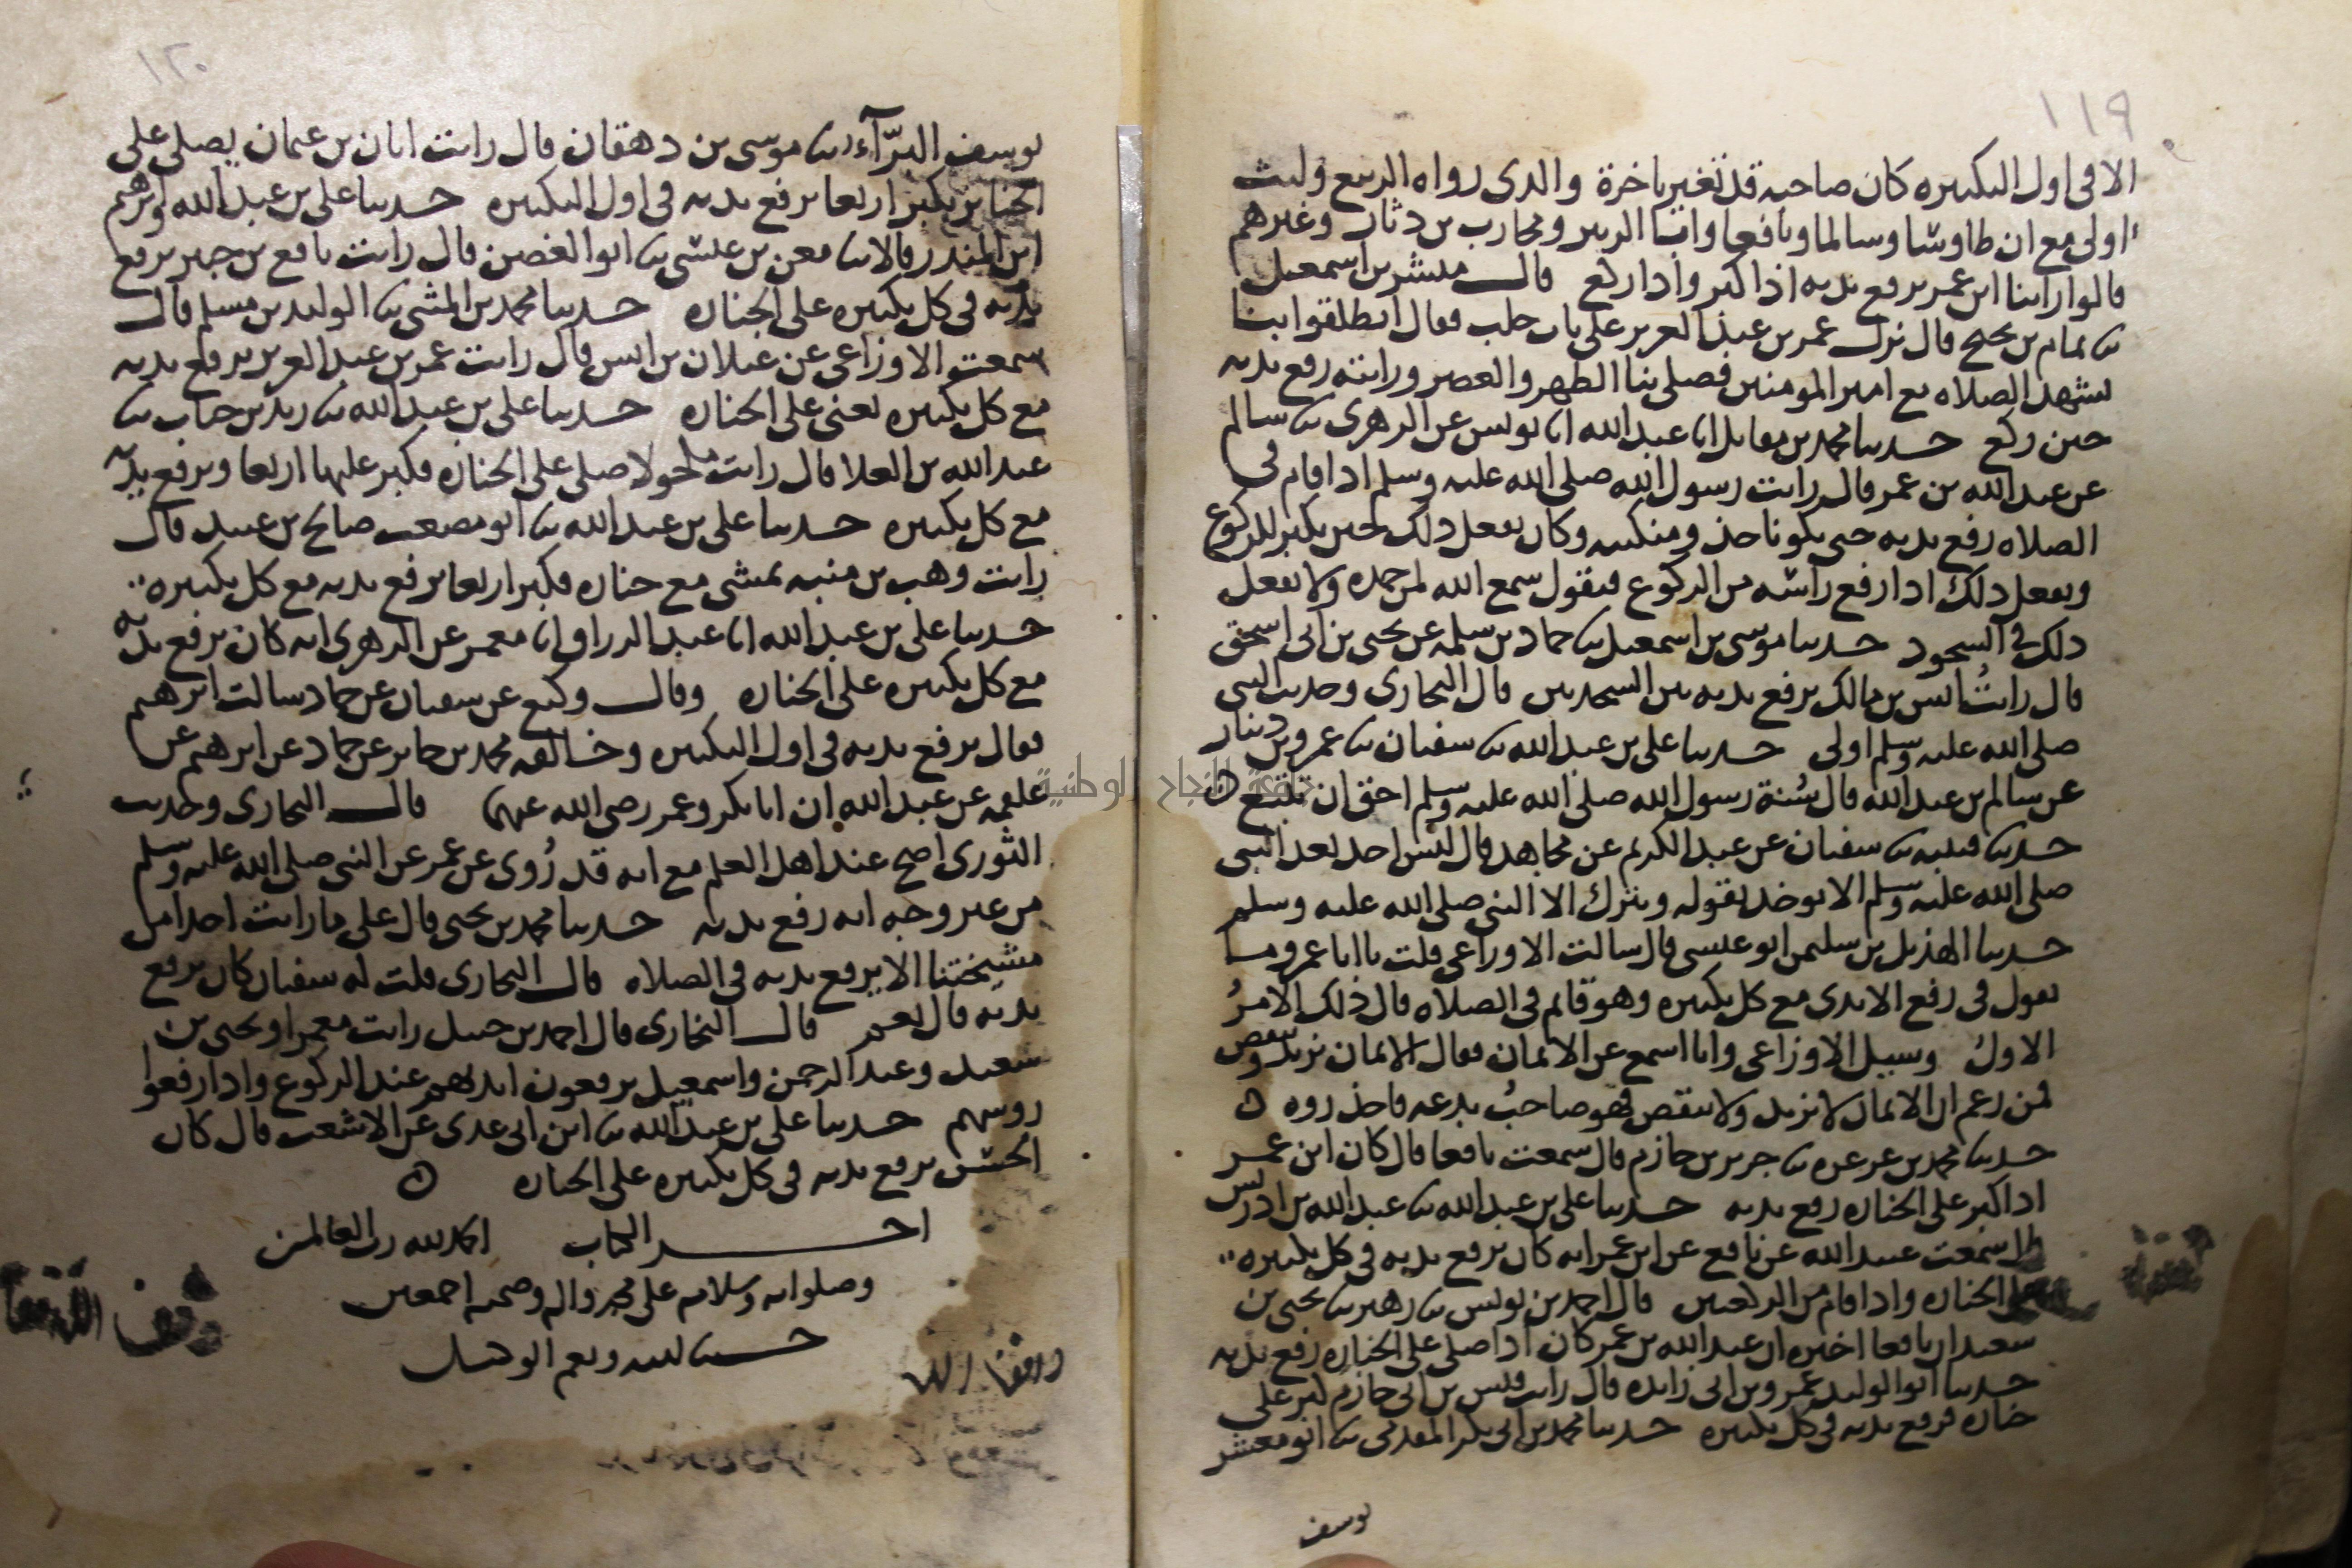 ١١٩
الا في اول التكبيره كان صاحبه قد تغير باخرة والذي رواه الربيع وليث
اولى مع ان طاوسا وسالما ونافعا وابا الزبير ومحارب بن دثار وغيرهم
قالوا راينا ابن عمر يرفع يديه اذا كبر واذا ركع قال مبشر بن اسمعيل
ثنا تمام بن نجيح قال نزل عمر بن عبد العزيز على باب حلب فقال انطلقوا بنا
نشهد الصلاه مع امير المومنين فصلى بنا الظهر والعصر ورايته رفع يديه
حين ركع حدثنا محمد بن مقاتل انا عبد الله انا يونس عن الزهري ثنا سالم
عن عبد الله بن عمر قال رايت رسول الله صلى الله عليه وسلم اذا قام في
الصلاه رفع يديه حتى يكونا حذو منكبيه وكان يفعل ذلك حين يكبر للركوع
ويفعل ذلك اذا رفع راسه من الركوع فيقول سمع الله لمن حمده ولا يفعل
ذلك في السجود حدثنا موسى بن اسمعيل ثنا حماد بن سلمه عن يحيى بن ابي اسحق
قال رايت انس بن مالك يرفع يديه بين السجدتين قال البخاري وحديث النبي
صلى الله عليه وسلم اولى حدثنا علي بن عبد الله ثنا سفيان ثنا عمرو بن دينار
عن سالم بن عبد الله قال سُنة رسول الله صلى الله عليه وسلم احق ان تتبع
حدثنا قتيبه ثنا سفيان عن عبد الكريم عن مجاهد قال ليس احد بعد النبي
صلى الله عليه وسلم الا يوخذ بقوله ويترك الا النبي صلى الله عليه وسلم
حدثنا الهذيل بن سليمن ابو عيسى قال سالت الاوزاعي قلت يا ابا عمرو ما
تقول في رفع الايدي مع كل تكبيره وهو قائم في الصلاه قال ذلك الامرُ
الاول وسيل الاوزاعي وانا اسمع عن الايمان فقال الايمان يزيد وينقص
فمن زعم ان الايمان لا يزيد ولا ينقص فهو صاحبُ بدعه فاحذروه
حدثنا محمد بن عرعره ثنا جرير بن حازم قال سمعت نافعا قال كان ابن عمر
اذا كبر على الجنازه رفع يديه حدثنا علي بن عبد الله ثنا عبد الله بن ادريس
قال سمعت عبيد الله عن نافع عن ابن عمر انه كان يرفع يديه في كل تكبيره
على الجنازه واذا قام من الركعتين قال احمد بن يونس ثنا زهير ثنا يحيى بن
سعيد ان نافعا اخبره ان عبد الله بن عمر كان اذا صلى على الجنازه رفع يديه
حدثنا ابو الوليد عمرو بن ابي زايده قال رايت قيس بن ابي حازم كبر على
جنازه فرفع يديه في كل تكبيره حدثنا محمد بن ابي بكر المقدمي ثنا ابو معشر
يوسف
١٢٠
يوسف البرّآء ثنا موسى بن دهقان قال رايت ابان بن عثمان يصلي على
الجنائز يكبر اربعا يرفع يديه في اول التكبيره حدثنا علي بن عبد الله وابرهيم
ابن المنذر قالا ثنا معن بن عيسى ثنا ابو الغصن قال رايت نافع بن جبير يرفع
يديه في كل تكبيره على الجنازه حدثنا محمد بن المثنى ثنا الوليد بن مسلم قال
سمعت الاوزاعي عن غيلان بن انس قال رايت عمر بن عبد العزيز يرفع يديه
مع كل تكبيره يعني على الجنازه حدثنا علي بن عبد الله ثنا زيد بن حباب ثنا
عبد الله بن العلا قال رايت مكحولا صلى على الجنازه فكبر عليها اربعا ويرفع يديه
مع كل تكبيره حدثنا علي بن عبد الله ثنا ابو مصعب صالح بن عبيد قال
رايت وهب بن منبه يمشي مع جنازه فكبر اربعا يرفع يديه مع كل تكبيره
حدثنا علي بن عبد الله انا عبد الرزاق انا معمر عن الزهري انه كان يرفع يديه
مع كل تكبيره على الجنازه وقال وكيع عن سفيان عن حماد سالت ابرهيم
فقال يرفع يديه في اول التكبيره وخالفه محمد بن جابر عن حماد عن ابرهيم عن
علقمه عن عبد الله ان ابا بكر وعمر رضي الله عنهما قال البخاري وحديث
الثوري اصح عند اهل العلم مع انه قد رُوي عن عمر عن النبي صلى الله عليه وسلم
من غير وجه انه رفع يديه حدثنا محمد بن يحيى قال علي ما رايت احدا من
مشيختنا الا يرفع يديه في الصلاه قال البخاري قلت له سفيان كان يرفع
يديه قال نعم قال البخاري قال احمد بن حنبل رايت معمرا ويحيى بن
سعيد وعبد الرحمن واسمعيل يرفعون ايديهم عند الركوع واذا رفعوا
روسهم حدثنا علي بن عبد الله ثنا ابن ابي عدي عن الاشعث قال كان
الحسن يرفع يديه في كل تكبيره على الجنازه
اخر الكتاب الحمد لله رب العالمين
وصلواته وسلامه على محمد واله وصحبه اجمعين
حسبنا الله ونعم الوكيل
جامعة النجاح الوطنية